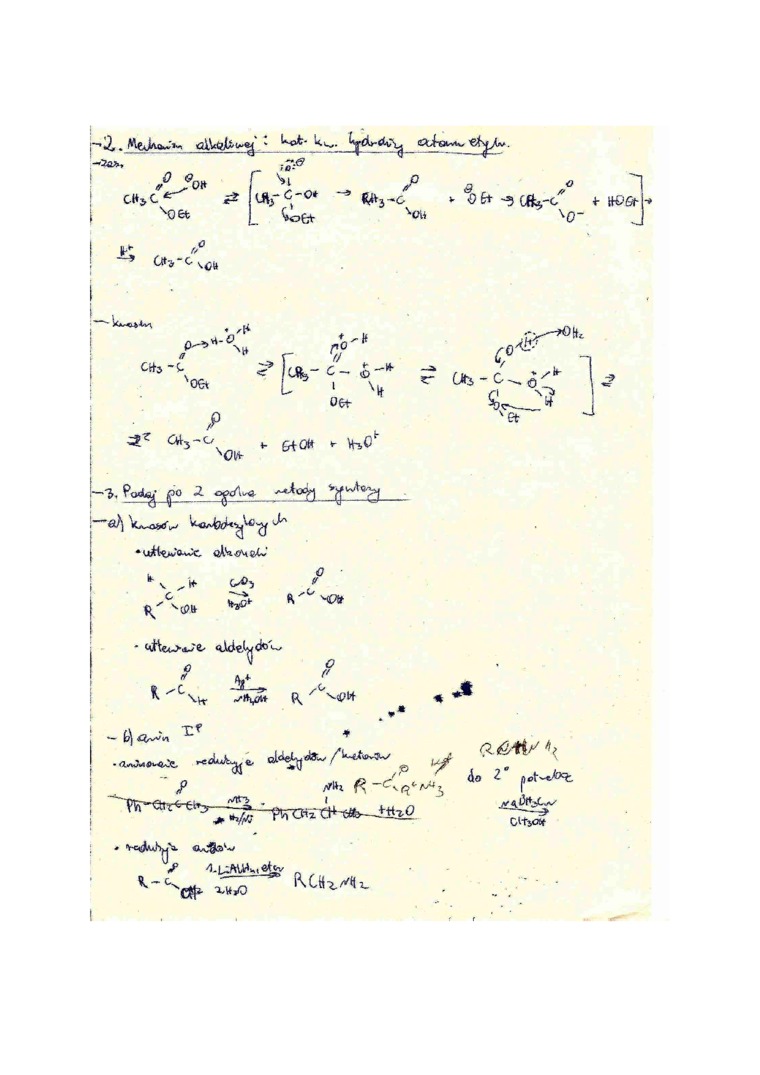 2. Mechanizm alkalicznej i kat. kw. hydrolizy octanu etylu.
- zas.
CH3C O OEt ⊖OH ⇌ [ CH3-C-OH OEt → CH3-C O OH + ⊖OEt → CH3-C O O- + HOEt ] →
H+ → CH3-C O OH
- kwasn
CH3-C O OEt H-O+ H H ⇌ [ CH3-C-O+-H H O+-H OEt ⇌ CH3-C-O+-H H O H OH2 O Et ] ⇌
⇌ CH3-C O OH + EtOH + H3O+
-3. Podaj po 2 ogólne metody syntezy
-a) kwasów karboksylowych
• utlenianie alkoholi
H H R C OH CrO3 H3O+ R-C O OH
• utlenianie aldehydów
R-C O H Ag+ NH4OH R-C O OH
- b) amin I°
• aminowanie redukcyjne aldehydów/ketonów
do 2° potrzeba
Ph-CH2CCH3 O NH3 H2/Ni PhCH2CHCH3 NH2 +H2O
NaBH3CN
CH3OH
• redukcja
R-C O 1. LiAlH4 eter 2. H2O RCH2NH2